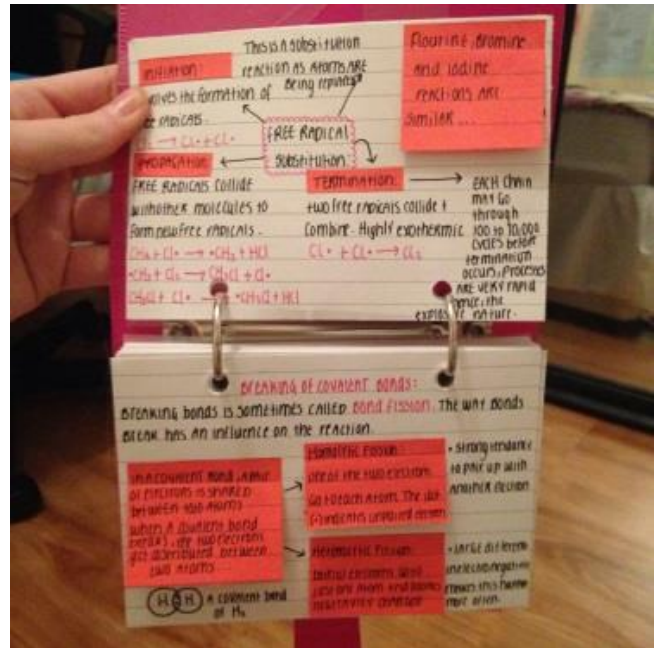 This is a substitution
reaction as atoms are
being replaced
Initiation:
involves the formation of
free radicals.
Cl₂ → Cl• + Cl•
Flourine, bromine
and iodine
reactions are
similar...
FREE RADICAL
SUBSTITUTION
PROPAGATION:
FREE RADICALS COLLIDE
with other molecules to
form new free radicals.
CH₄ + Cl• → •CH₃ + HCl
•CH₃ + Cl₂ → CH₃Cl + Cl•
CH₃Cl + Cl• → •CH₂Cl + HCl
TERMINATION:
two free radicals collide &
combine. Highly exothermic
Cl• + Cl• → Cl₂
EACH chain
may go
through
100 to 10,000
cycles before
termination
occurs, processes
are very rapid
hence, the
explosive nature.
Breaking of covalent bonds:
Breaking bonds is sometimes called bond fission. The way bonds
break has an influence on the reaction.
In a covalent bond, a pair
of electrons is shared
between two atoms
when a covalent bond
breaks, the two electrons
get distributed between
two atoms.
H H A covalent bond
of H₂
Homolytic fission:
one of the two electrons
go to each atom. The dot
(•) indicates unpaired electron
• Strong tendance
to pair up with
another electron
Heterolytic fission:
one atom and
• Large different
in electronegative
makes this happen
more often.